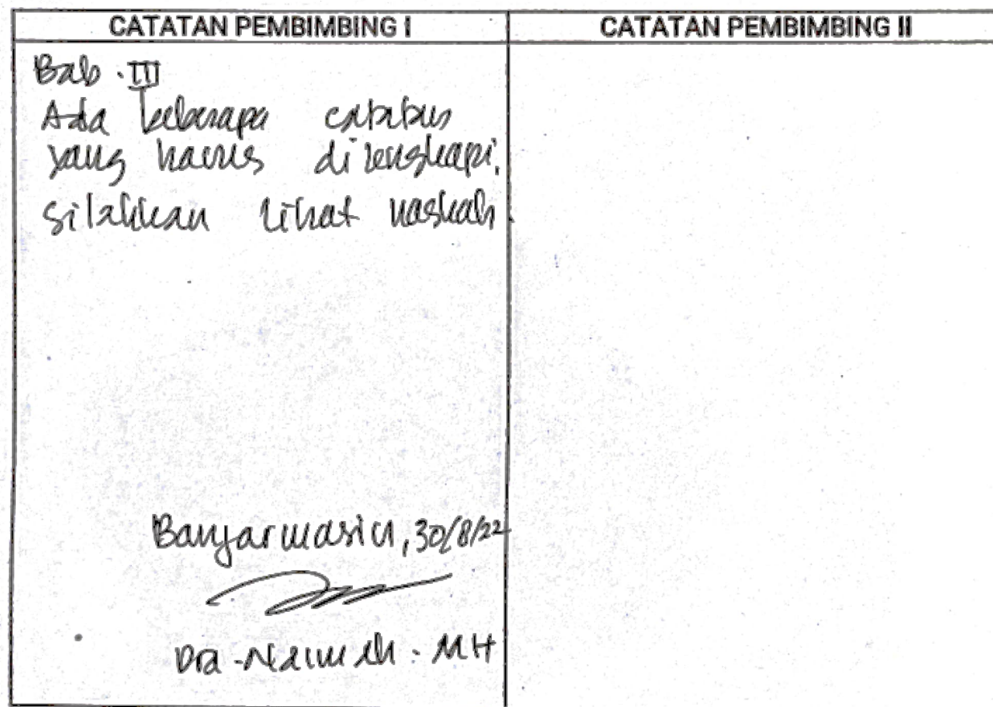 CATATAN PEMBIMBING I
CATATAN PEMBIMBING II
Bab. III
Ada beberapa catatan
yang harus dilengkapi.
silahkan lihat naskah.
Banjarmasin, 30/8/22
Dra. Naimah. MH